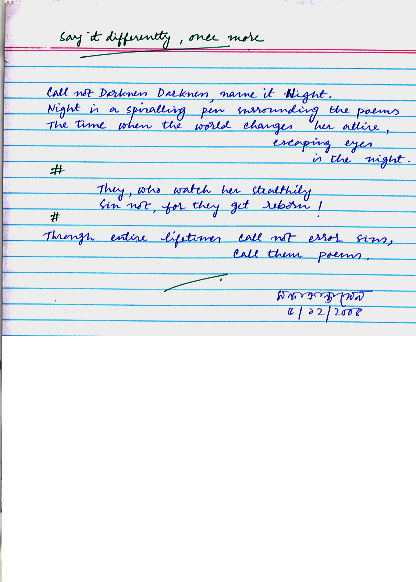 Say it differently, once more
Call not Darkness Darkness, name it Night.
Night is a spiralling pen surrounding the poems
The time when the world changes her attire,
escaping eyes
is the night.
#
They, who watch her stealthily
Sin not, for they get reborn!
#
Through entire lifetimes call not error sins,
Call them poems.